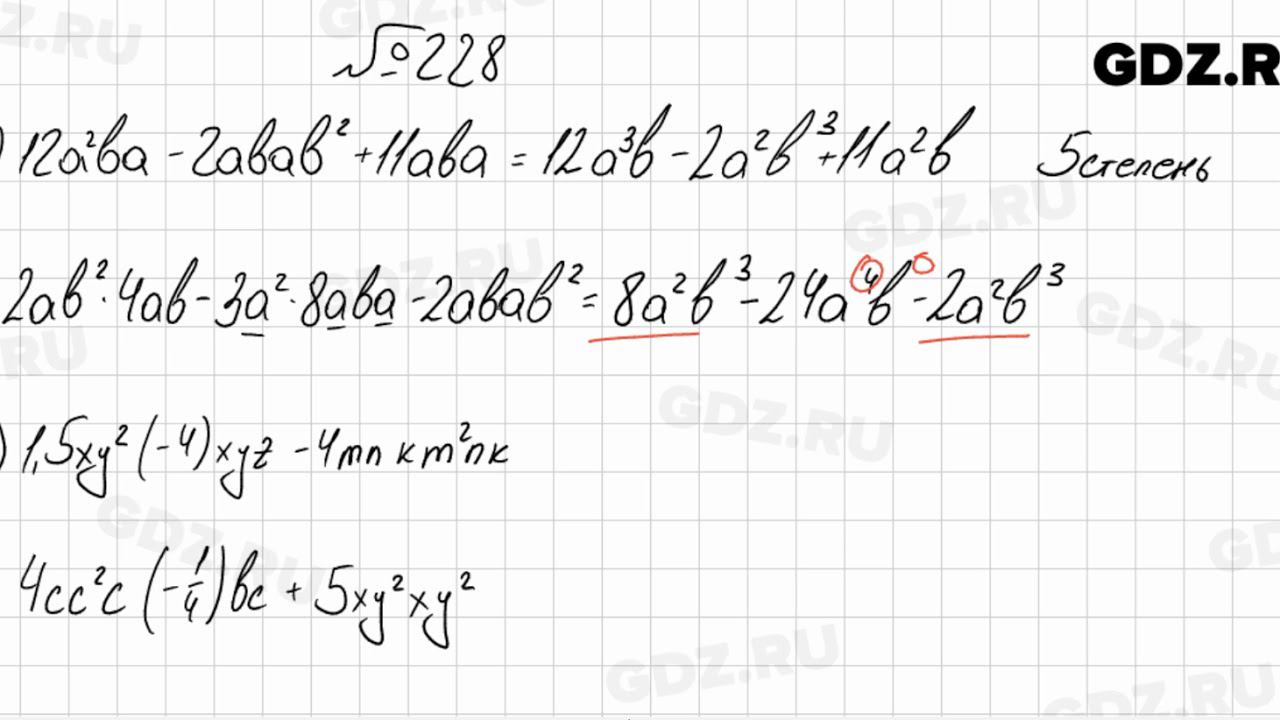 №228
GDZ.R
) 12a²ba - 2abab² + 11aba = 12a³b - 2a²b³ + 11a²b 5 степень
2ab² · 4ab - 3a² · 8aba - 2abab² = 8a²b³ - 24a⁴b - 2a²b³
) 1,5xy² (-4) xyz - 4mn km²nk
4cc²c (-1/4) bc + 5xy²xy²
GDZ.RU
GDZ.RU
GDZ.RU
GDZ.RU
GDZ.RU
GDZ.RU
GDZ.RU
GDZ.RU